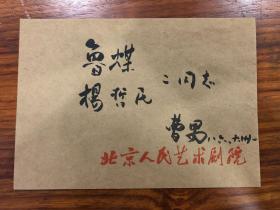 鲁煤
杨哲民 二同志
曹禺
北京人民艺术剧院